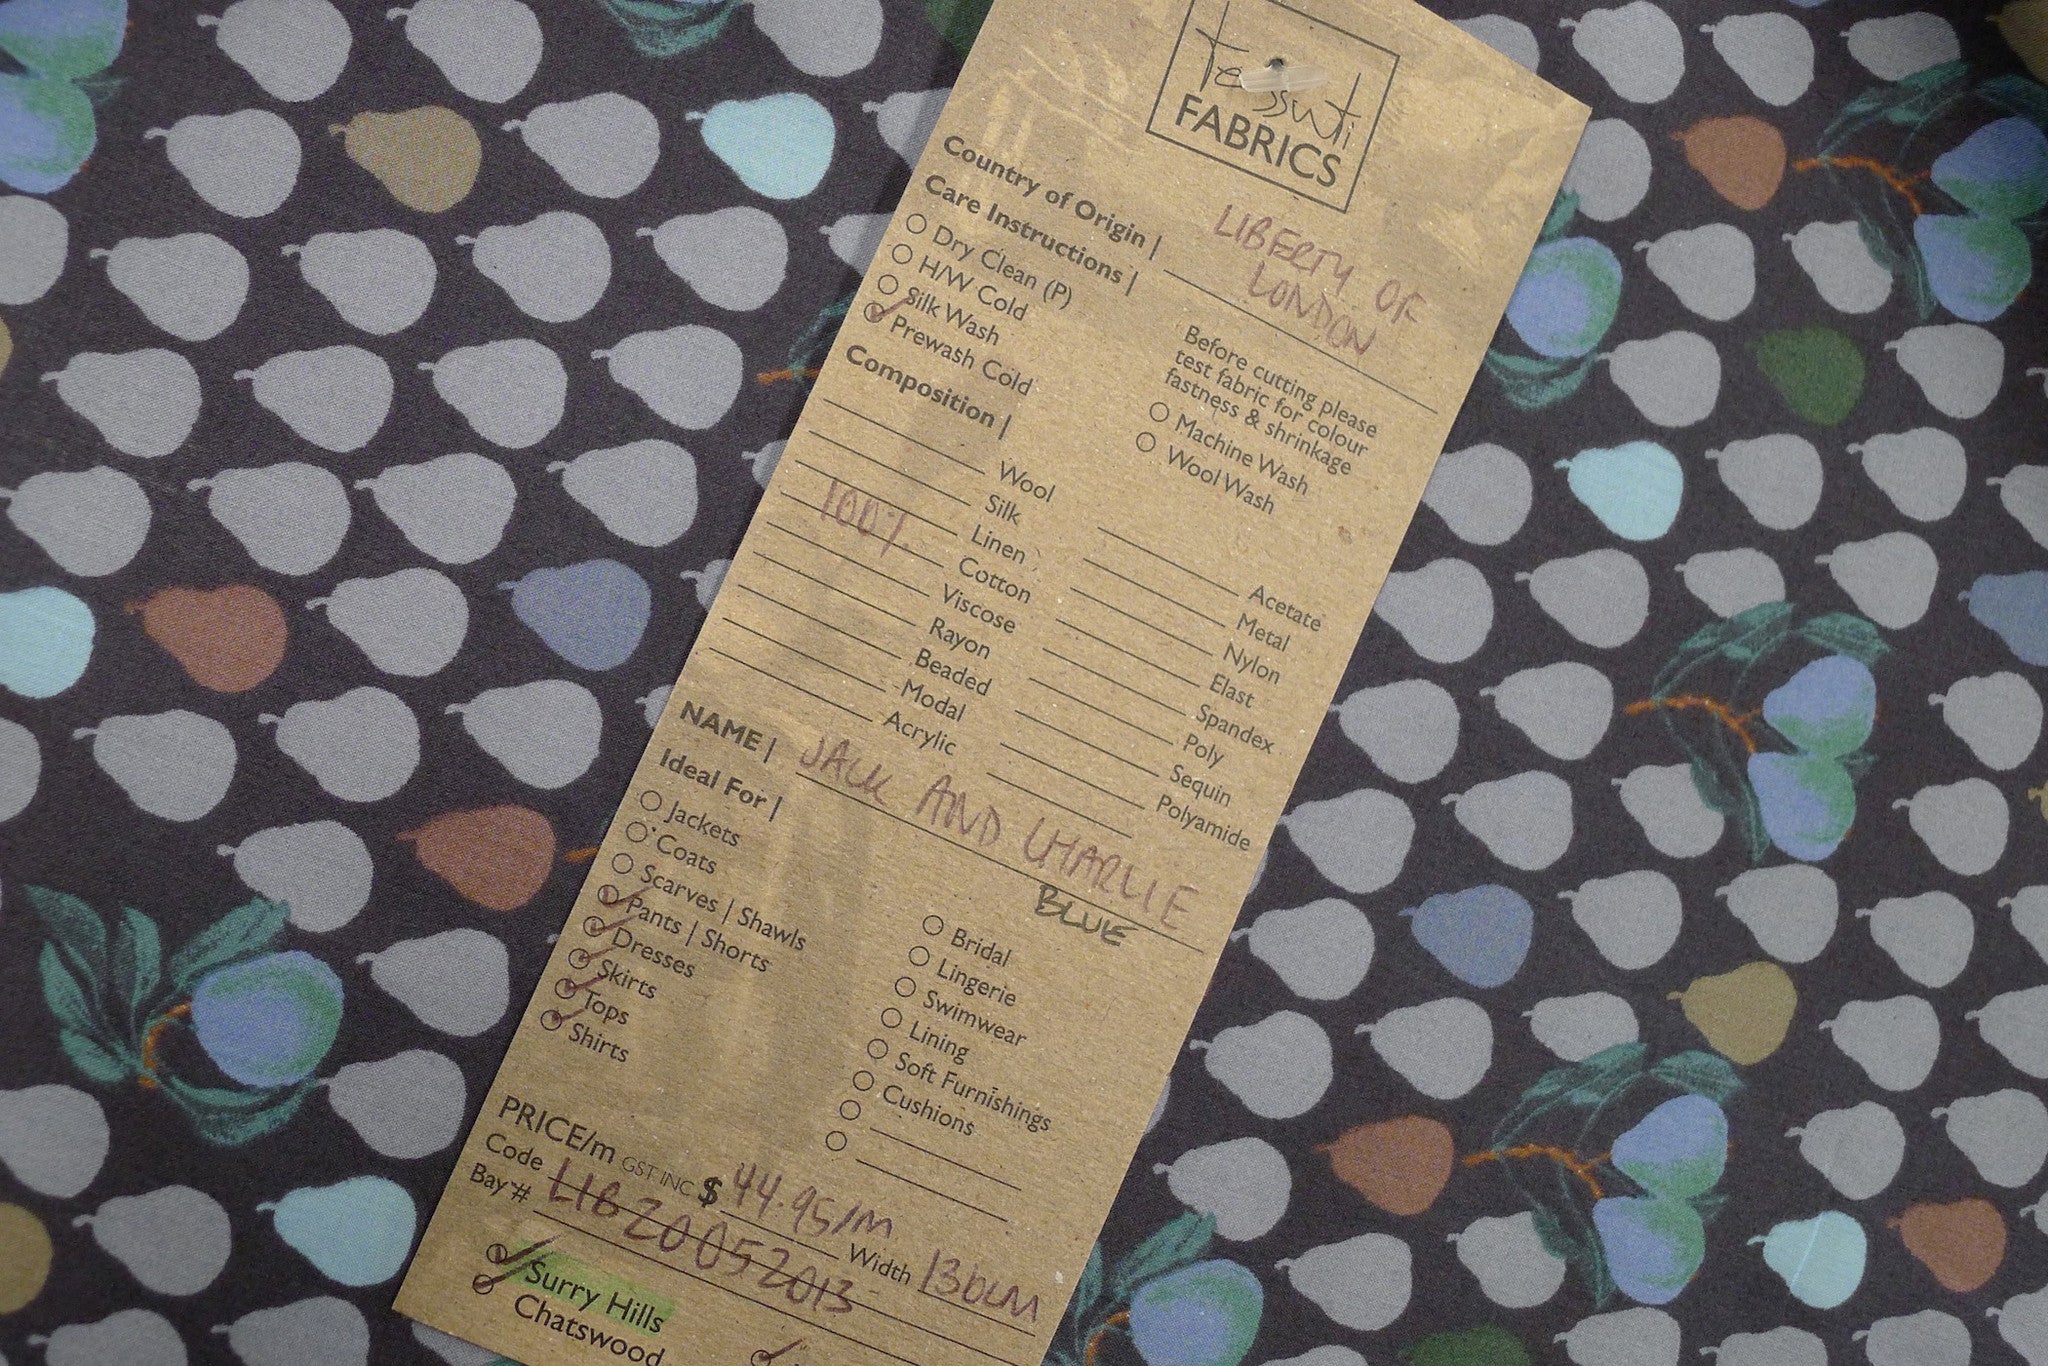 tessuti
FABRICS
Country of Origin | LIBERTY OF
LONDON
Care Instructions |
Dry Clean (P)
H/W Cold
Silk Wash
Prewash Cold
Before cutting please
test fabric for colour
fastness & shrinkage
Machine Wash
Wool Wash
Composition |
Wool
Silk
Linen
100% Cotton
Viscose
Rayon
Beaded
Modal
Acrylic
Acetate
Metal
Nylon
Elast
Spandex
Poly
Sequin
Polyamide
NAME | JACK AND CHARLIE
BLUE
Ideal For |
Jackets
Coats
Scarves | Shawls
Pants | Shorts
Dresses
Skirts
Tops
Shirts
Bridal
Lingerie
Swimwear
Lining
Soft Furnishings
Cushions
PRICE/m GST INC $ 44.95/m
Code LIBZ0052013 Width 136cm
Bay #
Surry Hills
Chatswood